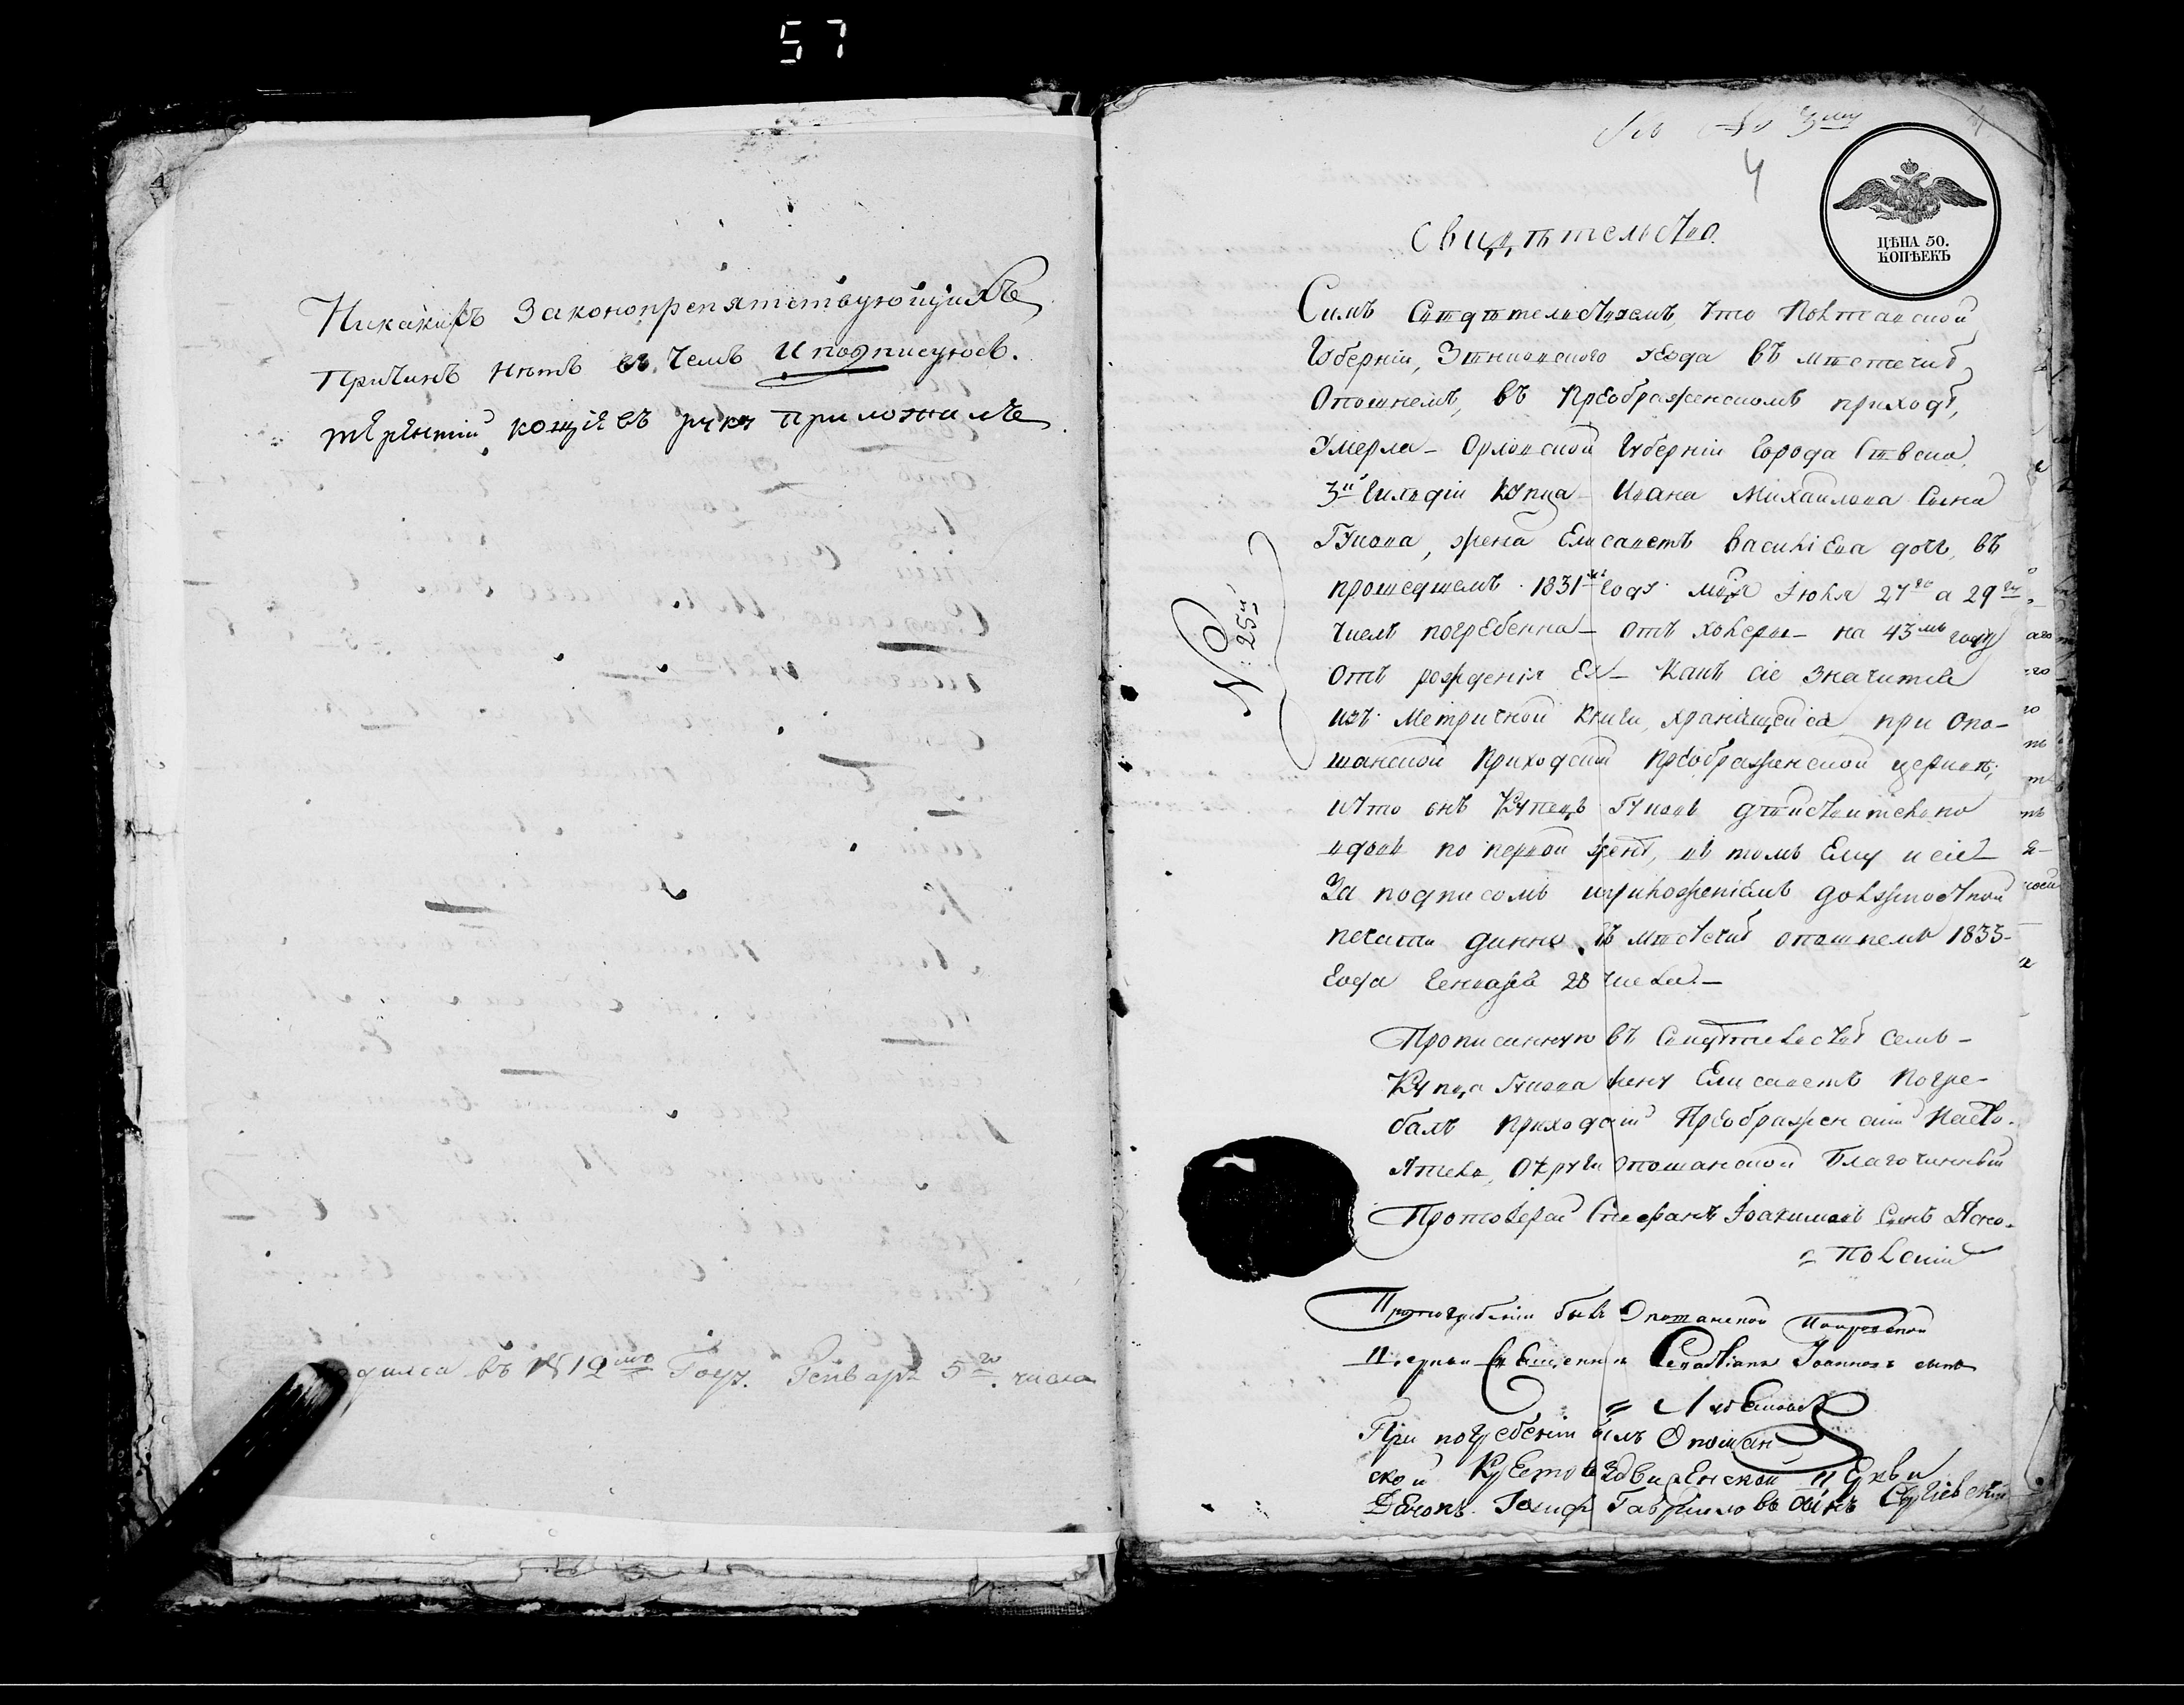 57
Никакихъ Законопрепятствующихъ
Причинъ нѣтъ въ чемъ и подписуюсь.
тЕрЕнтий кощѣевъ руку приложилъ
въ 1812мъ Году. Генваря 5го числа
4
ЦѢНА 50.
КОПѢЕКЪ
Свидѣтельство.
Симъ Свидѣтельствуемъ, что Полтавской
Губерніи, Зѣньковского уѣзда въ мѣстечкѣ
Опошнемъ, въ Преображенскомъ приходѣ,
Умерла Орловской Губерніи Города Сѣвска
3й Гильдіи Купца Ивана Михайлова сына
Гукова, жена Елисаветъ васильева дочь, въ
прошедшемъ 1831мъ году Іюля 27го а 29го
числъ погребенна отъ холеры на 43мъ году
отъ рожденія Ея Какъ сіе значится
изъ Метричной Книги, хранящейся при Опо-
шанской Приходской Преображенской церквѣ;
и что онъ Купецъ Гуковъ дѣйствительно
вдовъ по первой женѣ, въ томъ Ему и сіе
За подписомъ и приложеніемъ должностной
печати данно. Въ Мѣстечкѣ опошнемъ 1833-
Года Генваря 28 числа.
№: 25й
Прописанную въ Свидѣтельствѣ семъ
Купца Гукова жену Елисаветъ Погре-
балъ приходскій Преображенскій Насто-
ятель, Округи Опошанской Благочинный
Протоіерей Стефанъ Іоакимовъ Сынъ Ясно-
= польский
При погребении былъ Опошанской Покровской
Церкви Священникъ Іоанновъ сынъ
При погребении былъ Опошан-
ской КрЕстовоздвижЕнской ЦЕркви
Іосифъ Гавриловъ сынъ Сергіевский